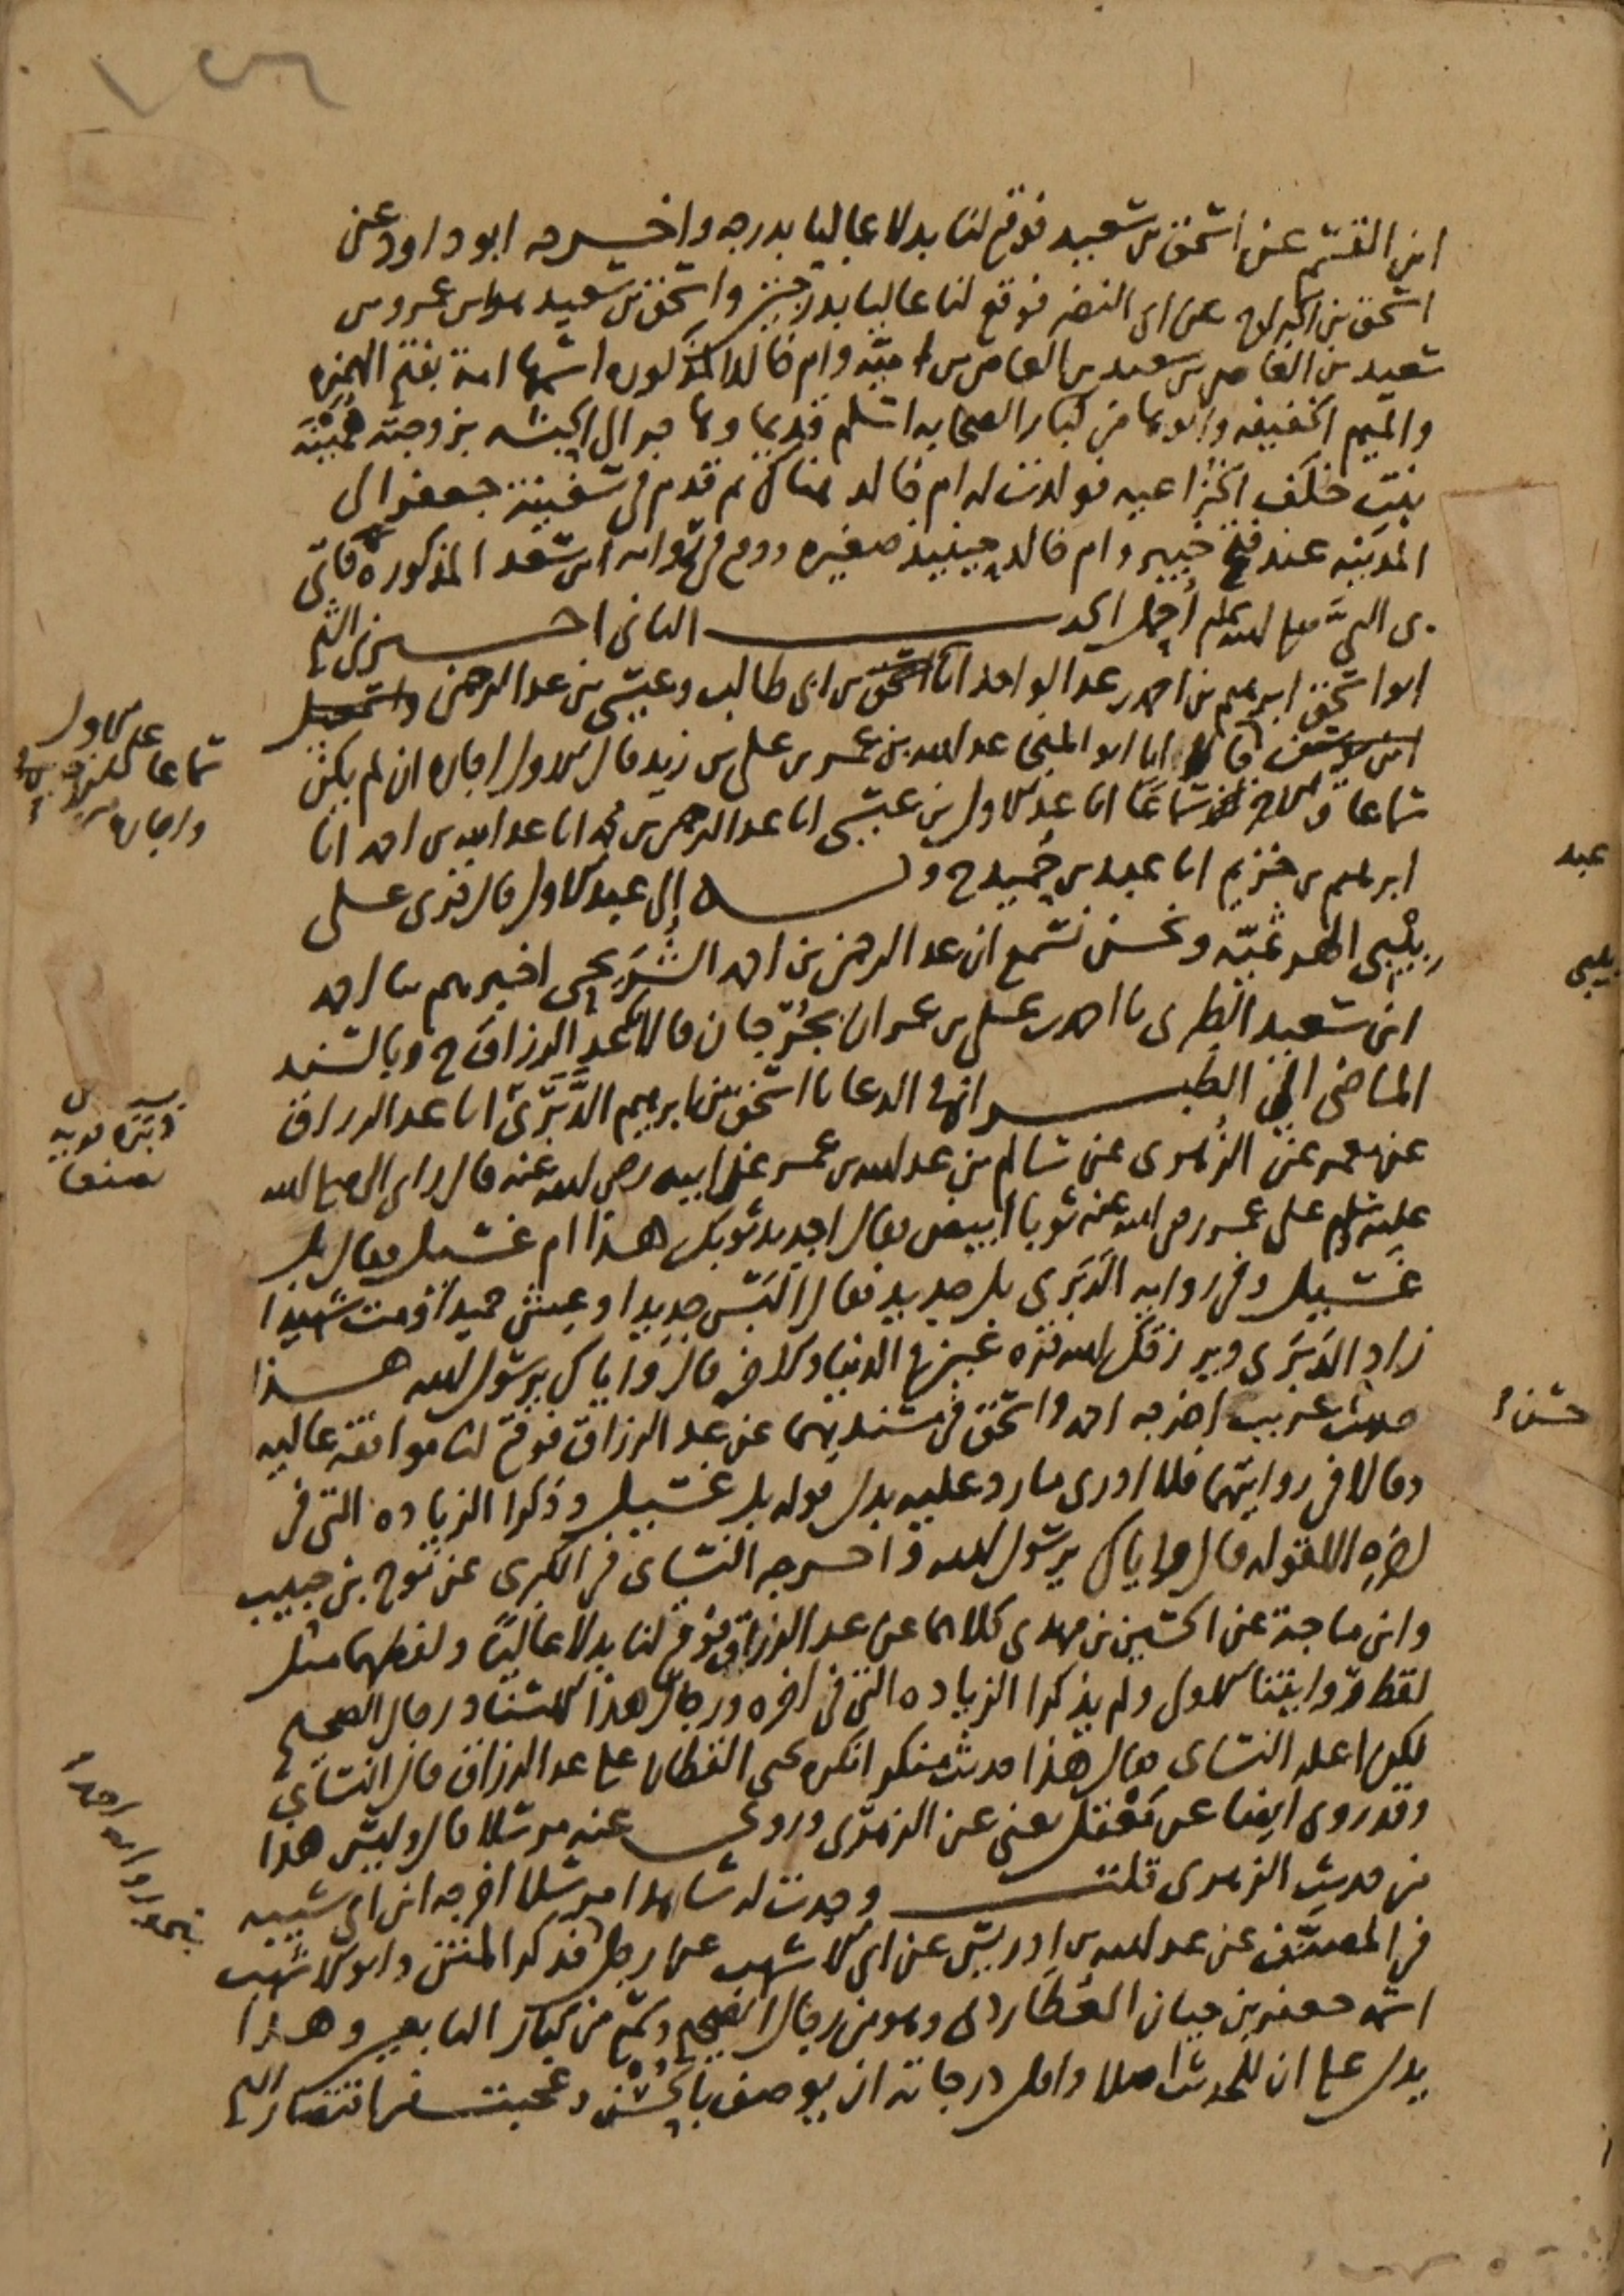 ابن القسم عن اسحق بن سعيد فوقع لنا بدلا عاليا بدرجه واخرجه ابو داود عن
اسحق بن الجراح عن ابى النضر فوقع لنا عاليا بدرجتين واسحق بن سعيد هو ابن عمرو بن
سعيد بن العاص بن سعيد بن العاص بن اميه وام خالد المذكوره اسمها امة بفتح الهمزه
والميم الخفيفه وابوها من كبار الصحابه اسلم قديما وهاجر الى الحبشه بزوجته همينة
بنت خلف الخزاعيه فولدت له ام خالد هناك ثم قدم فى سفينة جعفر الى
المدينه عند فتح خيبر وام خالد حينيذ صغيره ووقع فى رواية ابن سعد المذكوره فاتى
بى النبي صلى الله عليه وسلم احمل الحديث الثانى اخبرنى الشيخ
ابو اسحق ابرهيم بن احمد بن عبد الواحد انا اسحق بن ابى طالب وعيسى بن عبد الرحمن واسمعيل
ابن يوسف قالا انا ابو المنجا عبد الله بن عمر بن على بن زيد قال الاول اجازه ان لم يكن
سماعا وقال الاخر سماعا انا عبد الاول بن عيسى انا عبد الرحمن بن محمد انا عبد الله بن احمد انا
ابرهيم بن خزيم انا عبد بن حميد ح وبه الى عبد الاول قال قرى على
بيبى الهرثميه ونحن نسمع ان عبد الرحمن بن احمد الشريحى اخبرهم نا احمد
ابن سعيد الطبرى نا احمد بن على بن عمران بجرجان قالا نا عبد الرزاق ح وبالسند
الماضى الى الطبرانى فى الدعا نا اسحق بن ابرهيم الدبرى انا عبد الرزاق
عن معمر عن الزهرى عن سالم بن عبد الله بن عمر عن ابيه رضى الله عنه قال راى النبى صلى الله
عليه وسلم على عمر رضى الله عنه ثوبا ابيض فقال اجديد ثوبك هذا ام غسيل فقال بل
غسيل وفى روايه الدبرى بل جديد فقال البس جديدا وعش حميدا ومت شهيدا
زاد الدبرى ويرزقك الله قره عين فى الدنيا والاخره قال واياك يرسول الله هذا
حديث غريب اخرجه احمد واسحق فى مسنديهما عن عبد الرزاق فوقع لنا موافقه عاليه
وقالا فى روايتهما فلا ادرى ما رد عليه بدل قوله بل غسيل وذكرا الزياده التى فى
اخره الا قوله قال واياك يرسول الله واخرجه النساى فى الكبرى عن نوح بن حبيب
وابن ماجة عن الحسين بن مهدى كلاهما عن عبد الرزاق فوقع لنا بدلا عاليا ولفظهما مثل
لفظ روايتنا الاولى ولم يذكرا الزياده التى فى اخره ورجال هذا الاسناد رجال الصحيح
لكن اعله النساى فقال هذا حديث منكر انكره يحيى القطان على عبد الرزاق قال النساى
وقد روى ايضا عن معقل يعنى عن الزهرى وروى عنه مرسلا قال وليس هذا
من حديث الزهرى قلت وجدت له شاهدا مرسلا اخرجه ابن ابى شيبه
فى المصنف عن عبد الله بن ادريس عن ابى الاشهب عن رجل فذكر المتن وابو الاشهب
اسمه جعفر بن حيان العطاردى وهو من رجال الصحيح وسمع من كبار التابعين وهذا
يدل على ان للحديث اصلا واقل درجاته ان يوصف بالحسن وعجبت من اقتصار الشيخ
عبد الاول
سماعا
واجازه
دبره قريه
بصنعا
عبد
بيبى
حسن